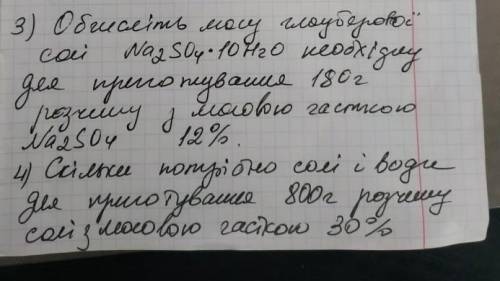 3) Обчисліть масу глауберової
солі Na2SO4·10H2O необхідну
для приготування 180г
розчину з масовою часткою
Na2SO4 12%.
4) Скільки потрібно солі і води
для приготування 800г розчину
солі з масовою часткою 30%